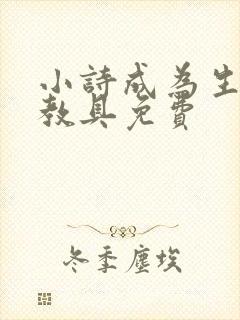 小詩成為生
教具免費
冬季塵埃